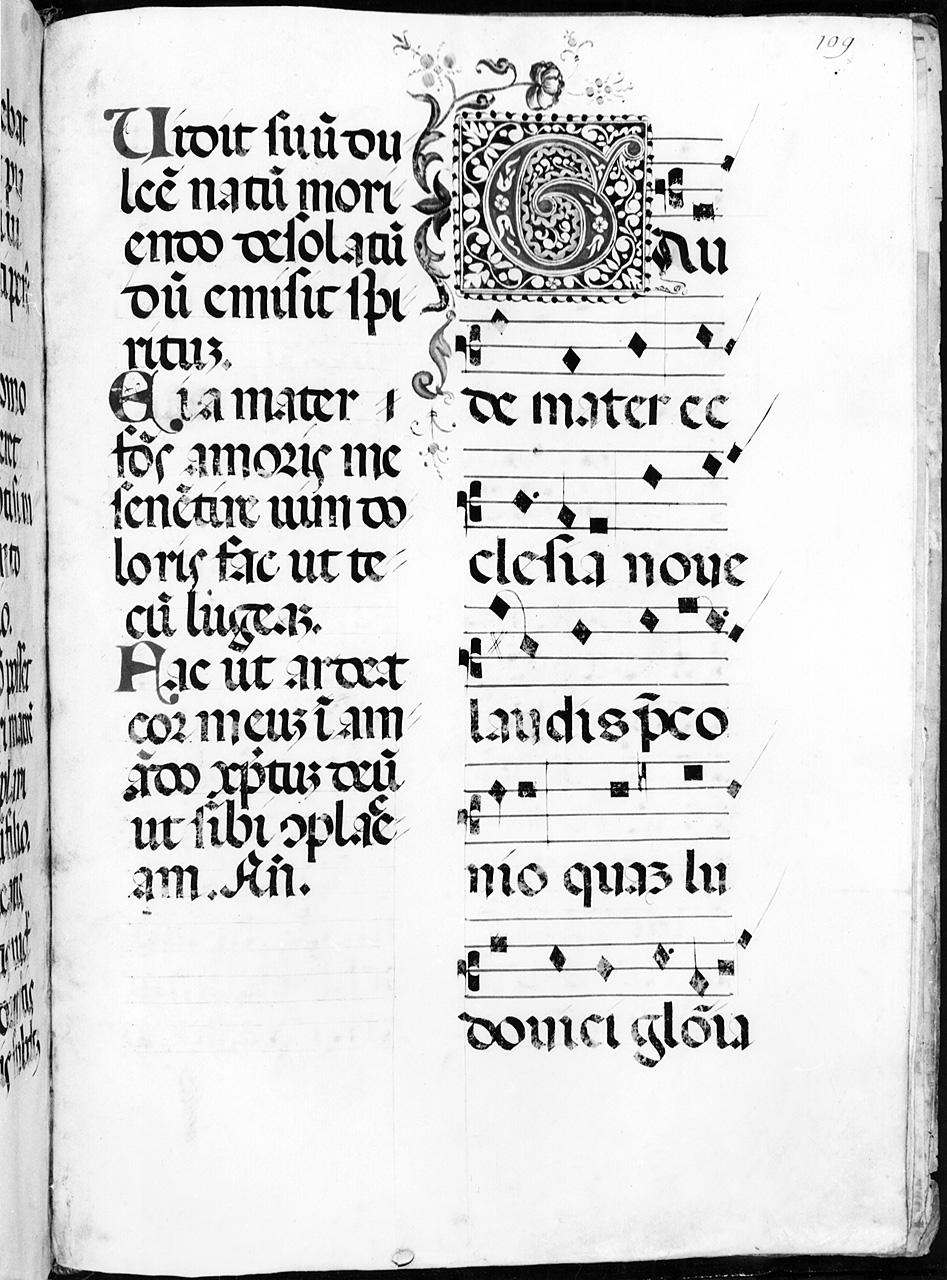 109
Uidit suū du
lcē natū mori
endo desolatū
dū emisit spi
rituz.
Eia mater i
fōs amoris me
senētire uim do
loris fac ut te
cū lugeaz.
Fac ut ardeat
cor meuz ī am
ādo xp̄tuz deū
ut sibi ɔplacē
am. Am̄.
Gau
de mater ec
clesia noue
laudis p̄co
nio quaz lu
douici glōia